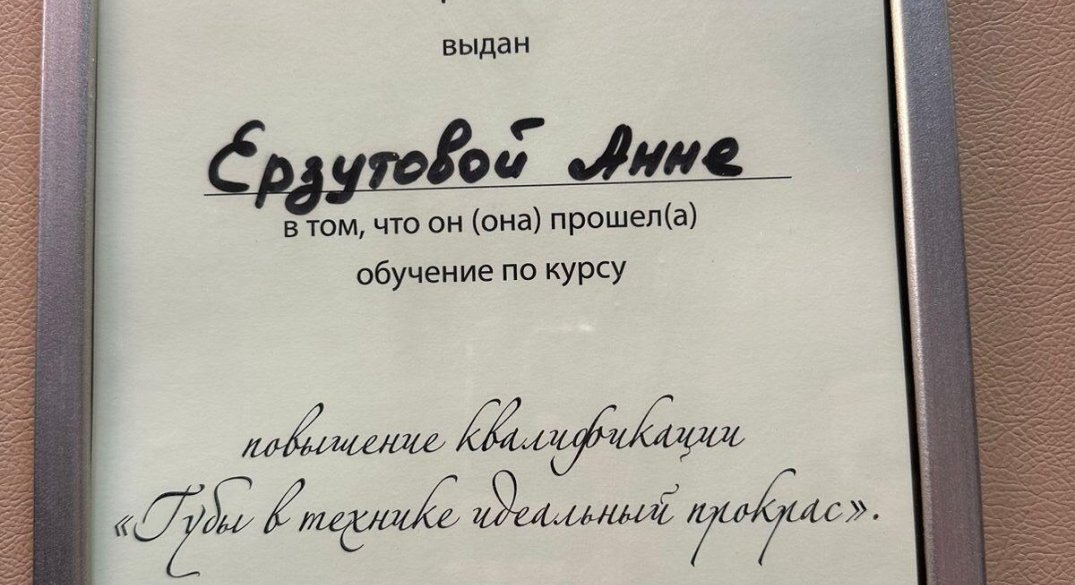 выдан
Ерзутовой Анне
в том, что он (она) прошел(а)
обучение по курсу
повышение квалификации
«Губы в технике идеальный прокрас».